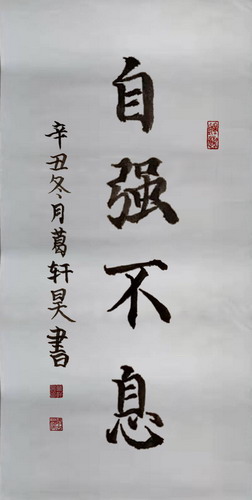 自强不息
辛丑冬月葛轩昊書